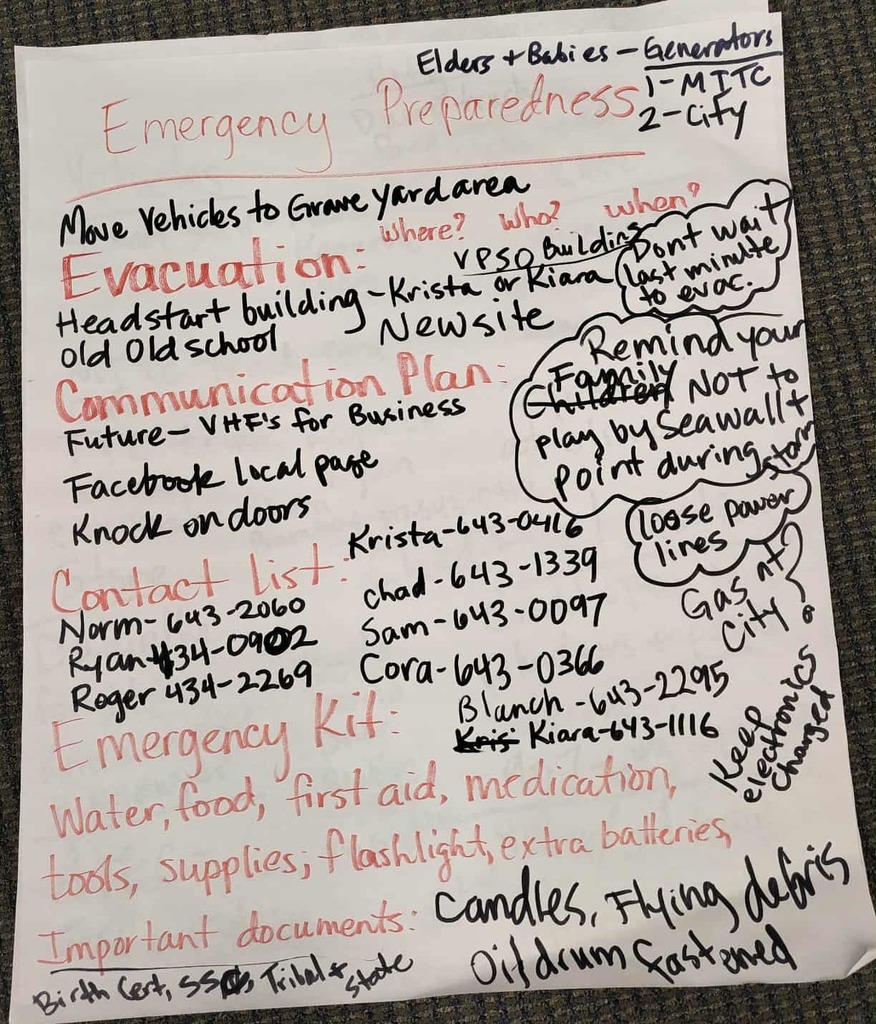 Elders + Babies - Generators
1-MITC
2-City
Emergency Preparedness
Move Vehicles to Graveyard area
Where? Who? When?
Evacuation:
VPSO Building
Headstart building - Krista or Kiara
Old Old school
Newsite
Dont wait
last minute
to evac.
Communication Plan:
Future - VHF's for Business
Facebook local page
Knock on doors
Remind your
Family
Children NOT to
play by Seawall +
point during storm
loose power
lines
Contact list:
Norm - 643-2060
Ryan 434-0902
Roger 434-2269
Krista - 643-0416
Chad - 643-1339
Sam - 643-0097
Cora - 643-0366
Blanch - 643-2295
Kris: Kiara - 643-1116
Gas at
City?
Keep
electronics
Charged
Emergency Kit:
Water, food, first aid, medication,
tools, supplies; flashlight, extra batteries,
Candles, Flying debris
Oil drum fastened
Important documents:
Birth Cert, Tribal + State